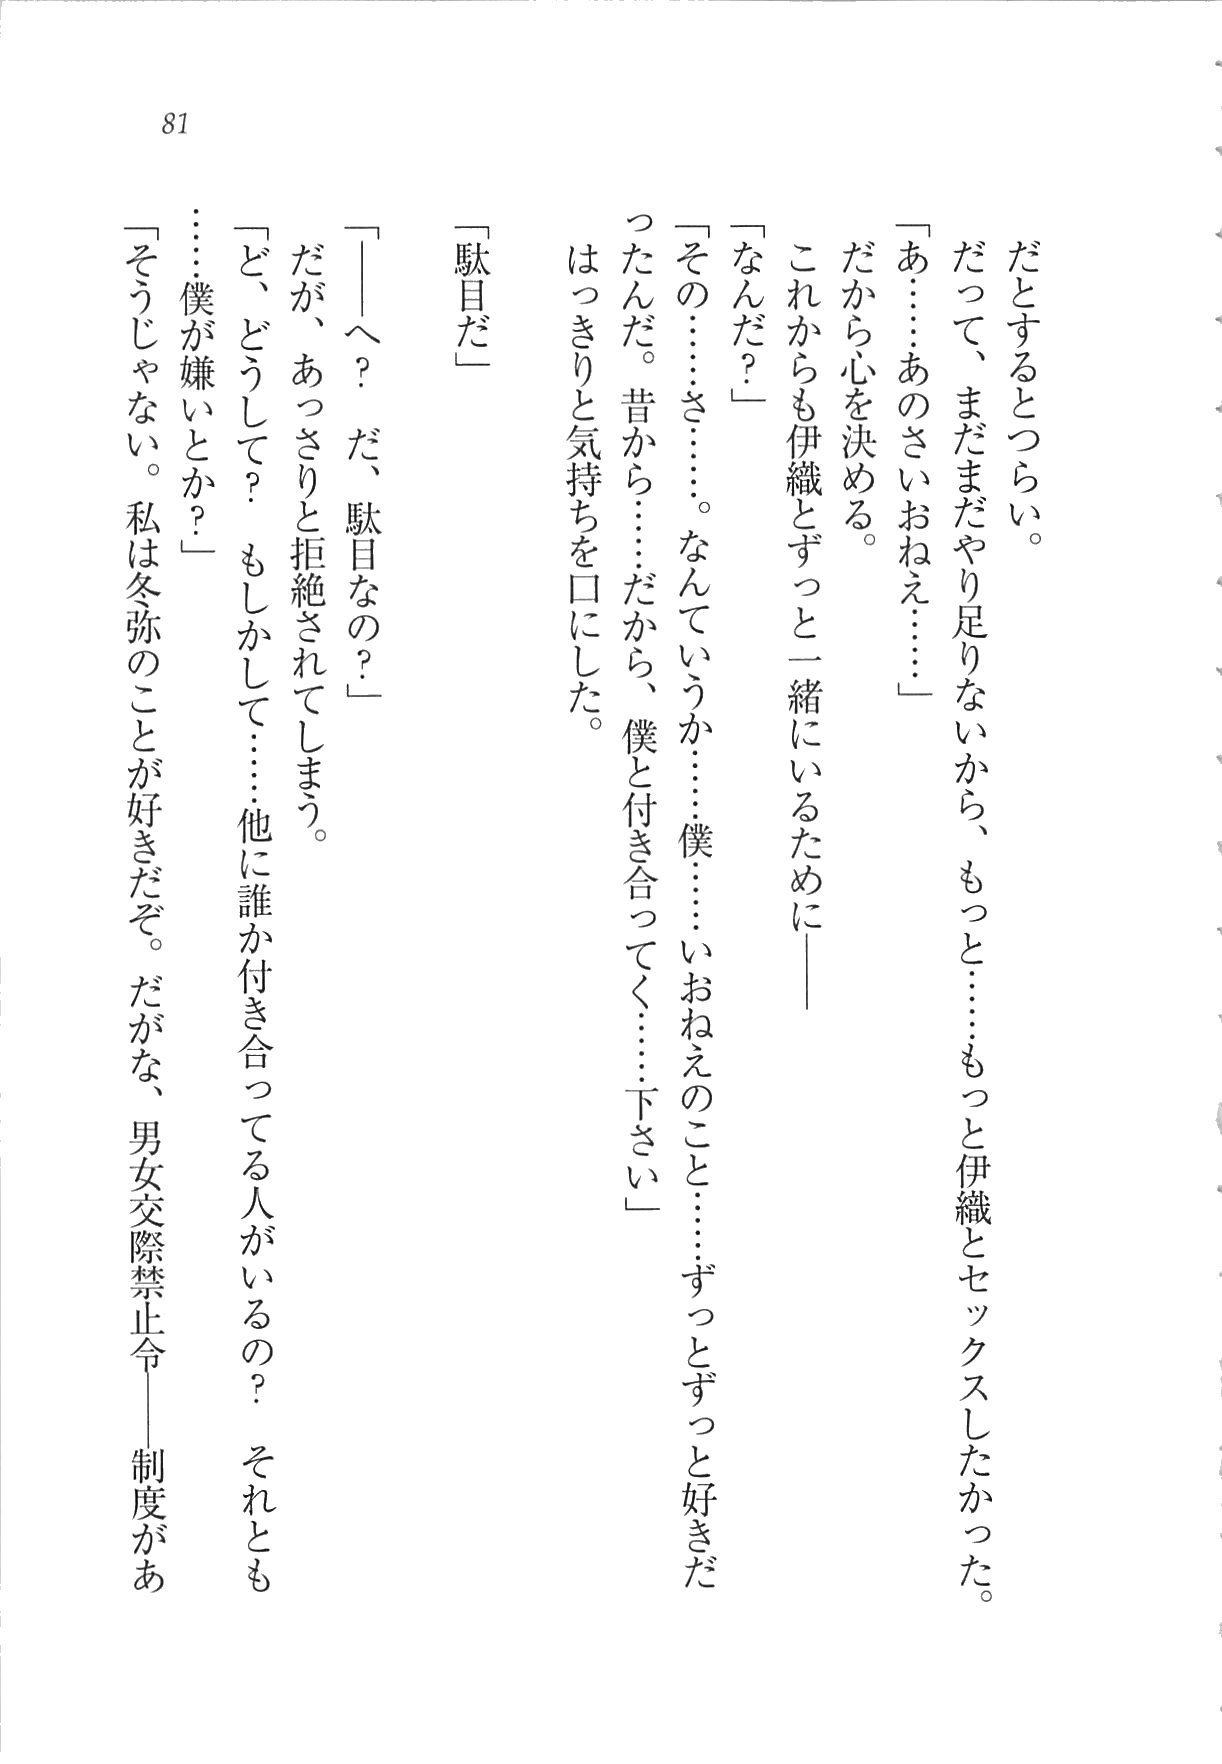 81
だとするとつらい。
だって、まだまだやり足りないから、もっと……もっと伊織とセックスしたかった。
「あ……あのさいおねえ……」
だから心を決める。
これからも伊織とずっと一緒にいるために――
「なんだ？」
「その……さ……。なんていうか……僕……いおねえのこと……ずっとずっと好きだ
ったんだ。昔から……だから、僕と付き合ってく……下さい」
はっきりと気持ちを口にした。
「駄目だ」
「――へ？　だ、駄目なの？」
だが、あっさりと拒絶されてしまう。
「ど、どうして？　もしかして……他に誰か付き合ってる人がいるの？　それとも
……僕が嫌いとか？」
「そうじゃない。私は冬弥のことが好きだぞ。だがな、男女交際禁止令――制度があ